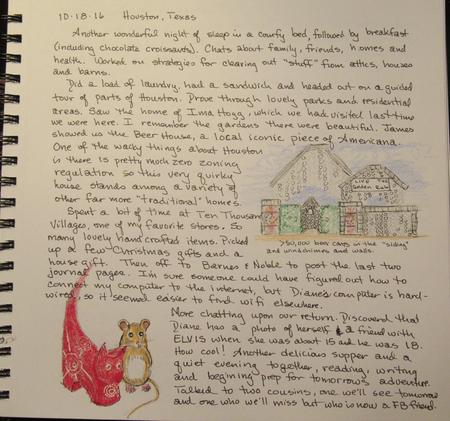 10-18-16 Houston, Texas
Another wonderful night of sleep in a comfy bed, followed by breakfast
(including chocolate croissants). Chats about family, friends, homes and
health. Worked on strategies for clearing out "stuff" from attics, houses
and barns.
Did a load of laundry, had a sandwich and headed out on a guided
tour of parts of Houston. Drove through lovely parks and residential
areas. Saw the home of Ima Hogg, which we had visited last time
we were here. I remember the gardens there were beautiful. James
showed us the Beer House, a local iconic piece of Americana.
One of the wacky things about Houston
is there is pretty much zero zoning
regulation so this very quirky
house stands among a variety of
other far more "traditional" homes.
LIVE THE
Golden Rule
>50,000 beer cans in the "siding"
and windchimes and walls.
Spent a bit of time at Ten Thousand
Villages, one of my favorite stores. So
many lovely handcrafted items. Picked
up a few Christmas gifts and a
house gift. Then off to Barnes & Noble to post the last two
journal pages. I'm sure someone could have figured out how to
connect my computer to the internet, but Diane's computer is hard-
wired, so it seemed easier to find wifi elsewhere.
More chatting upon our return. Discovered that
Diane has a photo of herself & a friend with
ELVIS when she was about 15 and he was 18.
How cool! Another delicious supper and a
quiet evening together, reading, writing
and beginning prep for tomorrow's adventure.
Talked to two cousins, one we'll see tomorrow
and one who we'll miss but who is now a FB friend.